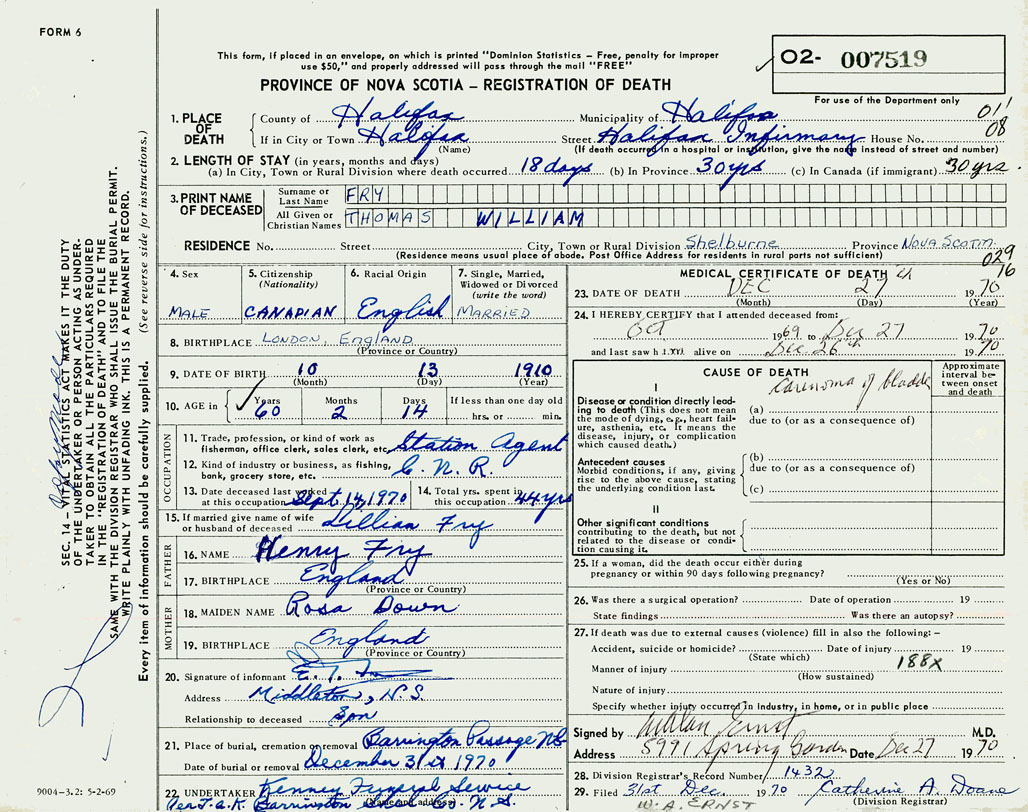 FORM 6
This form, if placed in an envelope, on which is printed "Dominion Statistics – Free, penalty for improper
use $50," and properly addressed will pass through the mail "FREE"
O2- 007519
PROVINCE OF NOVA SCOTIA – REGISTRATION OF DEATH
For use of the Department only
1. PLACE OF DEATH
County of Halifax Municipality of Halifax 01'
If in City or Town Halifax Street Halifax Infirmary House No. 08
(Name) (If death occurred in a hospital or institution, give the name instead of street and number)
2. LENGTH OF STAY (in years, months and days)
(a) In City, Town or Rural Division where death occurred 18 days (b) In Province 30 yrs (c) In Canada (if immigrant) 30 yrs.
3. PRINT NAME OF DECEASED
Surname or Last Name FRY
All Given or Christian Names THOMAS WILLIAM
RESIDENCE No. Street City, Town or Rural Division Shelburne Province NOVA SCOTIA
(Residence means usual place of abode. Post Office Address for residents in rural parts not sufficient) 029
16
4. Sex MALE
5. Citizenship (Nationality) CANADIAN
6. Racial Origin English
7. Single, Married, Widowed or Divorced (write the word) MARRIED
8. BIRTHPLACE LONDON, ENGLAND
(Province or Country)
9. DATE OF BIRTH 10 13 1910
(Month) (Day) (Year)
10. AGE in Years Months Days If less than one day old
60 2 14 hrs. or min.
OCCUPATION
11. Trade, profession, or kind of work as
fisherman, office clerk, sales clerk, etc. Station Agent
12. Kind of industry or business, as fishing,
bank, grocery store, etc. C.N.R.
13. Date deceased last worked
at this occupation Sept 14, 1970
14. Total yrs. spent in
this occupation 44 yrs
15. If married give name of wife
or husband of deceased Lillian Fry
FATHER
16. NAME Henry Fry
17. BIRTHPLACE England
(Province or Country)
MOTHER
18. MAIDEN NAME Rosa Down
19. BIRTHPLACE England
(Province or Country)
20. Signature of informant E. T.
Address Middleton, N.S.
Relationship to deceased Son
21. Place of burial, cremation or removal Barrington Passage NS
Date of burial or removal December 31st 1970
22. UNDERTAKER Kenney Funeral Service
(Name and address)
Per J.a.K. Barrington N.S.
MEDICAL CERTIFICATE OF DEATH
23. DATE OF DEATH DEC 27 1970
(Month) (Day) (Year)
24. I HEREBY CERTIFY that I attended deceased from:
Oct 1969 to Dec 27 1970
and last saw him alive on Dec. 26th 1970
CAUSE OF DEATH
Approximate interval between onset and death
I
Carcinoma of bladder
Disease or condition directly lead-
ing to death (This does not mean
the mode of dying, e.g., heart fail-
ure, asthenia, etc. It means the
disease, injury, or complication
which caused death.)
(a)
due to (or as a consequence of)
Antecedent causes
Morbid conditions, if any, giving
rise to the above cause, stating
the underlying condition last.
(b)
due to (or as a consequence of)
(c)
II
Other significant conditions
contributing to the death, but not
related to the disease or condi-
tion causing it.
25. If a woman, did the death occur either during
pregnancy or within 90 days following pregnancy?
(Yes or No)
26. Was there a surgical operation? Date of operation 19
State findings Was there an autopsy?
27. If death was due to external causes (violence) fill in also the following: –
Accident, suicide or homicide? Date of injury 19
(State which)
Manner of injury 188X
(How sustained)
Nature of injury
Specify whether injury occurred in industry, in home, or in public place
Signed by Allan Ernst M.D.
Address 5991 Spring Garden Date Dec 27 1970
28. Division Registrar's Record Number 1432
29. Filed 31st Dec. 1970 Catherine A. Doane
W. A. ERNST (Division Registrar)
SEC. 14 – VITAL STATISTICS ACT MAKES IT THE DUTY
OF THE UNDERTAKER OR PERSON ACTING AS UNDER-
TAKER TO OBTAIN ALL THE PARTICULARS REQUIRED
IN THE "REGISTRATION OF DEATH" AND TO FILE THE
SAME WITH THE DIVISION REGISTRAR WHO SHALL ISSUE THE BURIAL PERMIT.
WRITE PLAINLY WITH UNFADING INK. THIS IS A PERMANENT RECORD.
Every item of information should be carefully supplied. (See reverse side for instructions.)
9004-3.2: 5-2-69